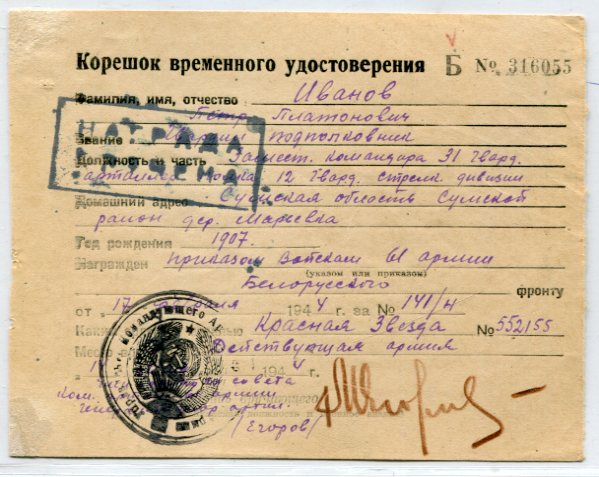 Корешок временного удостоверения Б № 316055
Фамилия, имя, отчество Иванов
Петр Платонович
Звание Гвардии подполковник
НАГРАДА
Должность и часть Замест. командира 31 Гвард.
артиллер. полка 12 Гвард. стрелк. дивизии
Домашний адрес Сумская область Сумской
район дер. Марьевка
Год рождения 1907.
Награжден приказом Войскам 61 армии
(указом или приказом)
Белорусского фронту
от 17 1944 г. за № 141/н
Красная Звезда № 552155
Место Действующая армия
194
совета
армии
(Егоров)